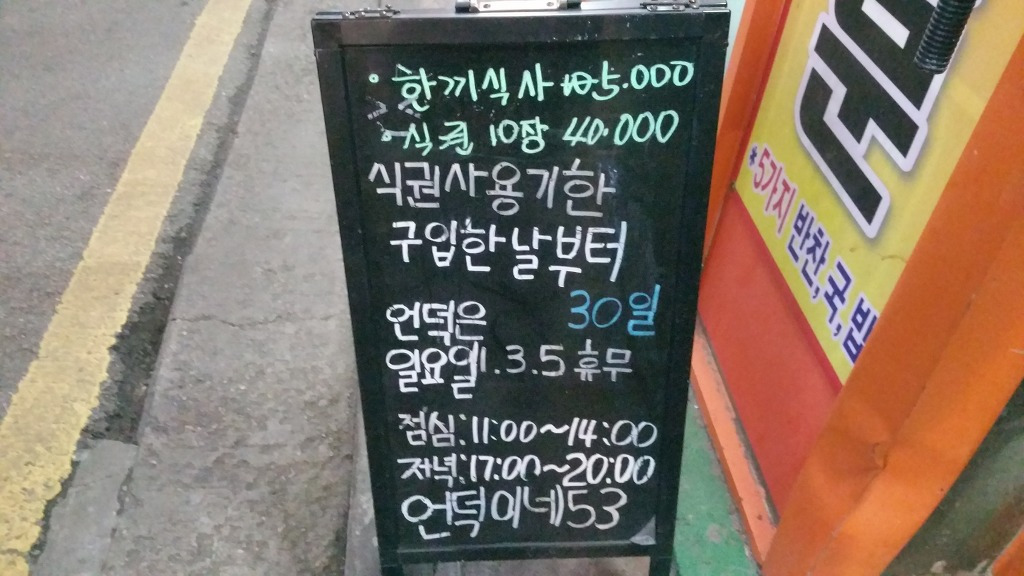 · 한끼식사 5.000
· 식권 10장 40.000
식권사용기한
구입한날부터
30일
언덕은
일요일1.3.5휴무
점심:11:00~14:00
저녁:17:00~20:00
언덕이네53
*5가지 반찬,국,밥